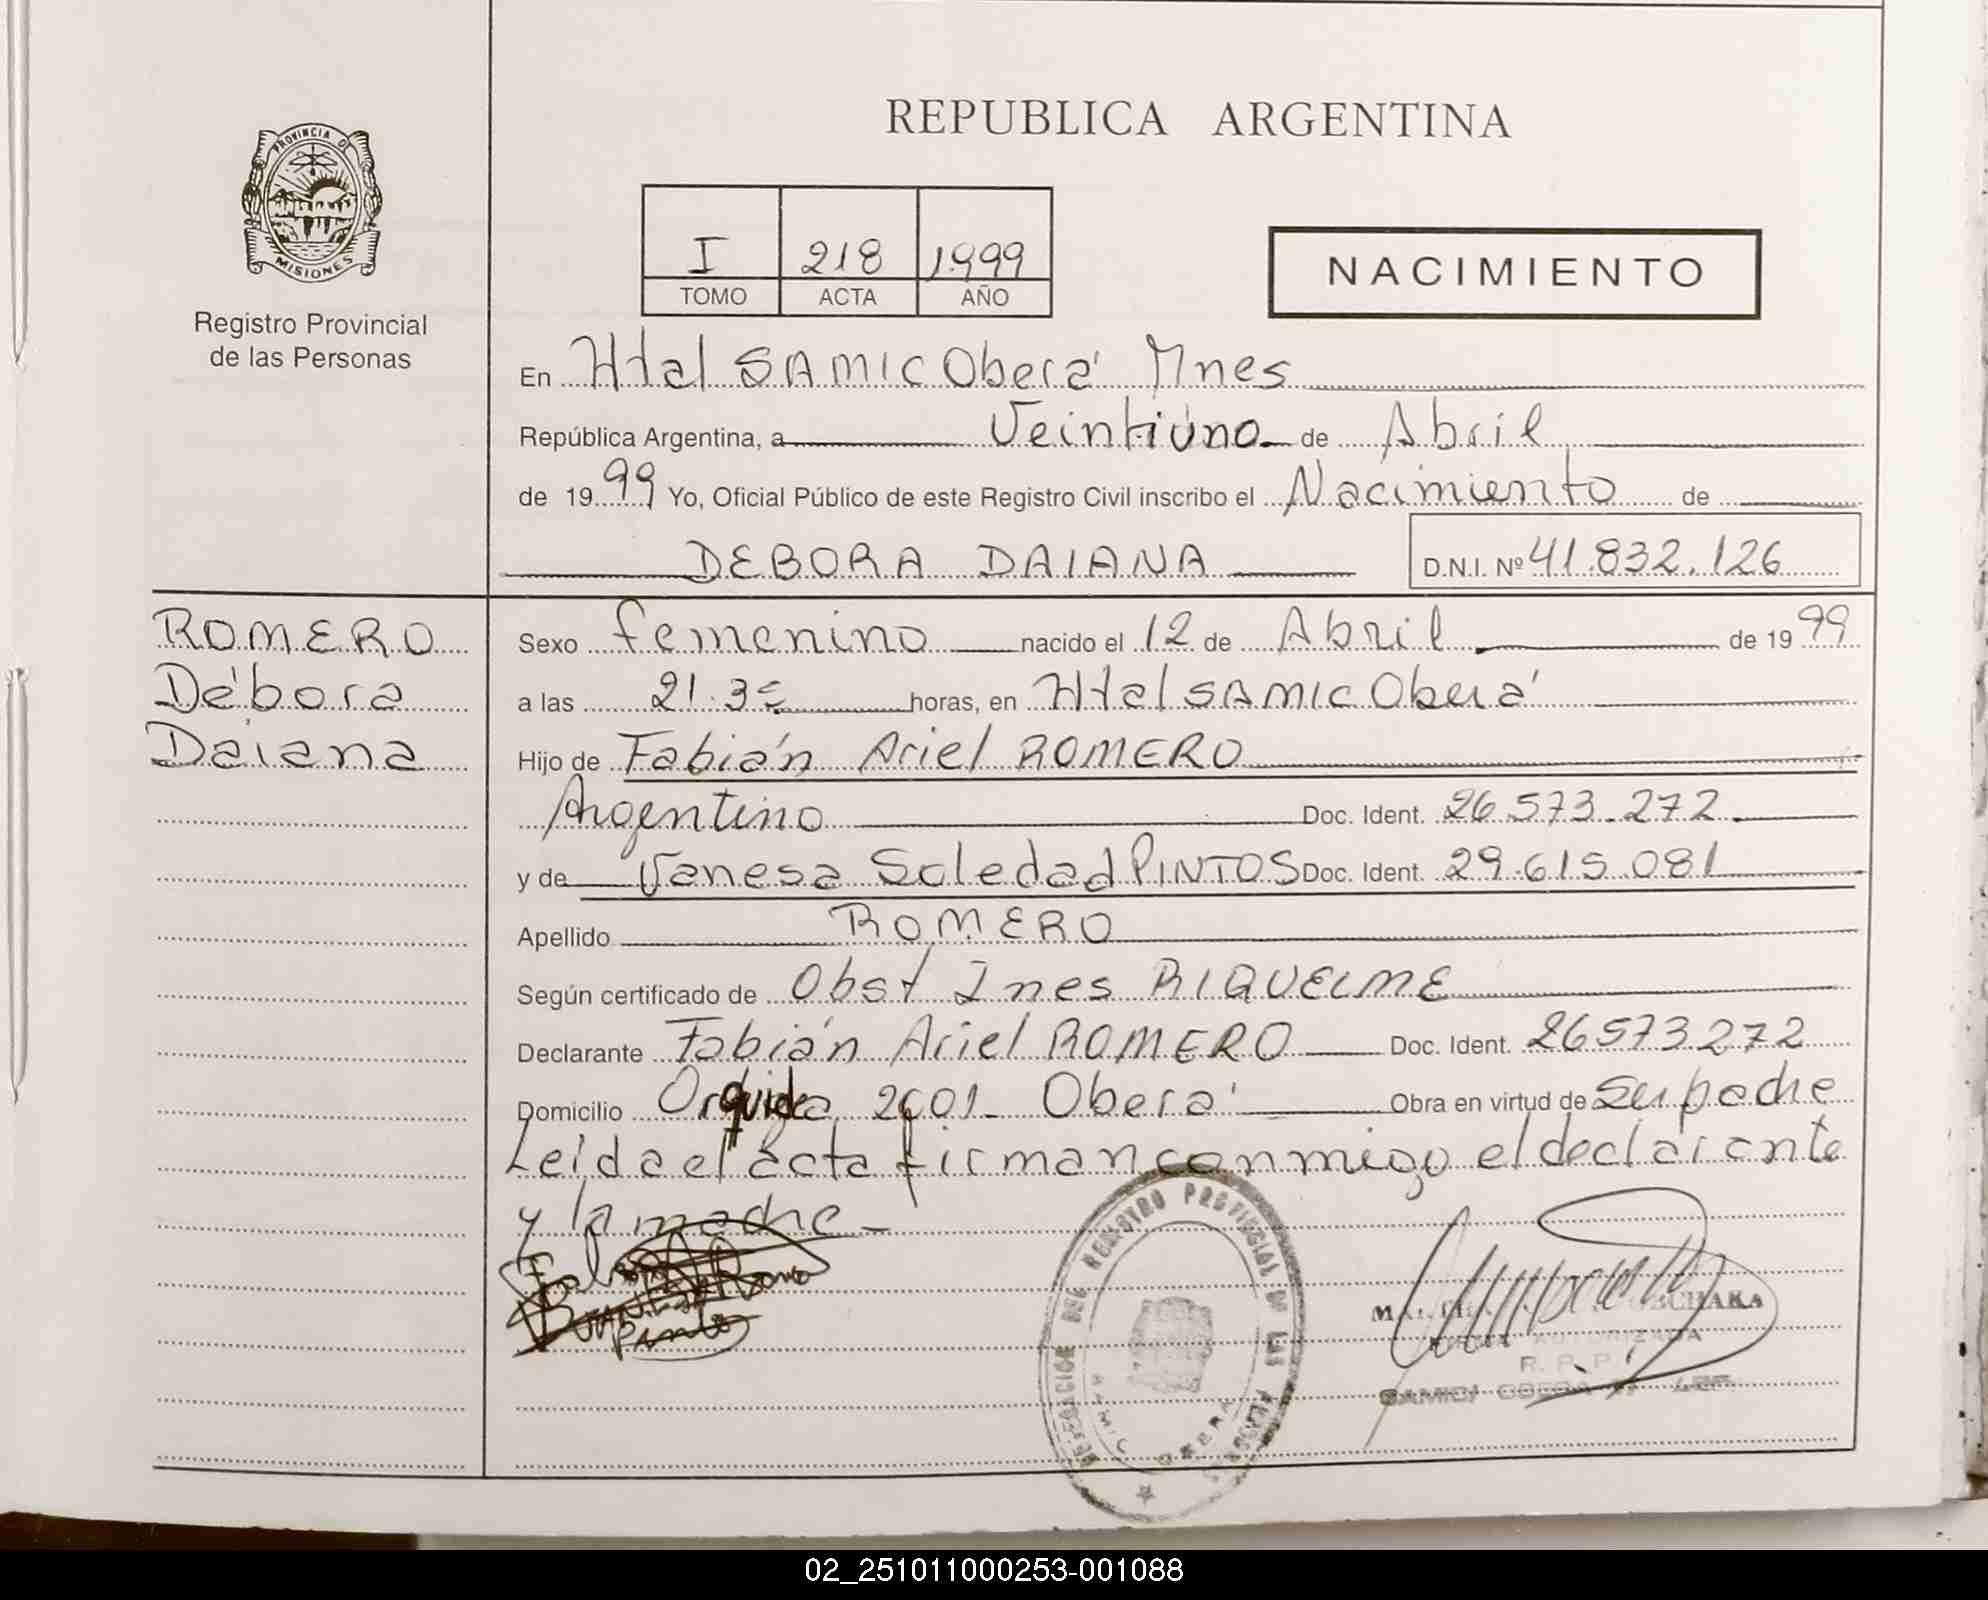 REPUBLICA ARGENTINA
PROVINCIA DE
MISIONES
Registro Provincial
de las Personas
I 218 1999
TOMO ACTA AÑO
NACIMIENTO
En Htal SAMIC Oberá Mnes
República Argentina, a Veintiuno de Abril
de 1999 Yo, Oficial Público de este Registro Civil inscribo el Nacimiento de
DEBORA DAIANA D.N.I. Nº 41.832.126
ROMERO
Débora
Daiana
Sexo femenino nacido el 12 de Abril de 1999
a las 21.35 horas, en Htal SAMIC Oberá
Hijo de Fabián Ariel ROMERO
Argentino Doc. Ident. 26.573.272
y de Vanesa Soledad PINTOS Doc. Ident. 29.615.081
Apellido ROMERO
Según certificado de Obst Ines RIQUELME
Declarante Fabián Ariel ROMERO Doc. Ident. 26573272
Domicilio Orquidea 2001 - Oberá Obra en virtud de ser padre
Leída el acta firman conmigo el declarante
y la madre -
REGISTRO PROVINCIAL DE LAS PERSONAS
SAMIC OBERA
AUTORIZADA
R. P. P.
SAMIC OBERA
02_251011000253-001088